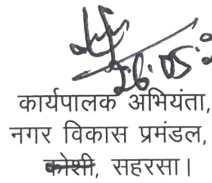 26.05.
कार्यपालक अभियंता,
नगर विकास प्रमंडल,
कोशी, सहरसा।